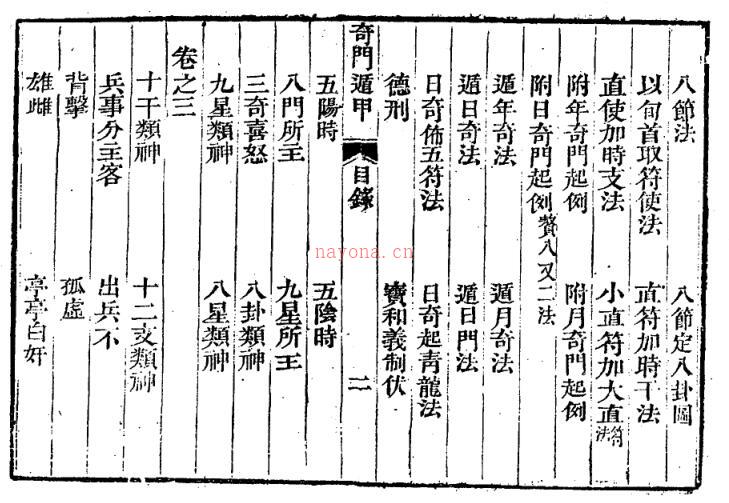 八節法 八節定八卦圖
以旬首取符使法 直符加時干法
直使加時支法 小直符加大直符法
附年奇門起例 附月奇門起例
附日奇門起例 贅入又二法
遁年奇法 遁月奇法
遁日奇法 遁日門法
日奇佈五符法 日奇起青龍法
德刑 寶和義制伏
奇門遁甲 目錄 二
五陽時 五陰時
八門所主 九星所主
三奇喜怒 八卦類神
九星類神 八星類神
卷之三
十干類神 十二支類神
兵事分主客 出兵不
背擊 孤虛
雄雌 亭亭白奸
nayona.cn